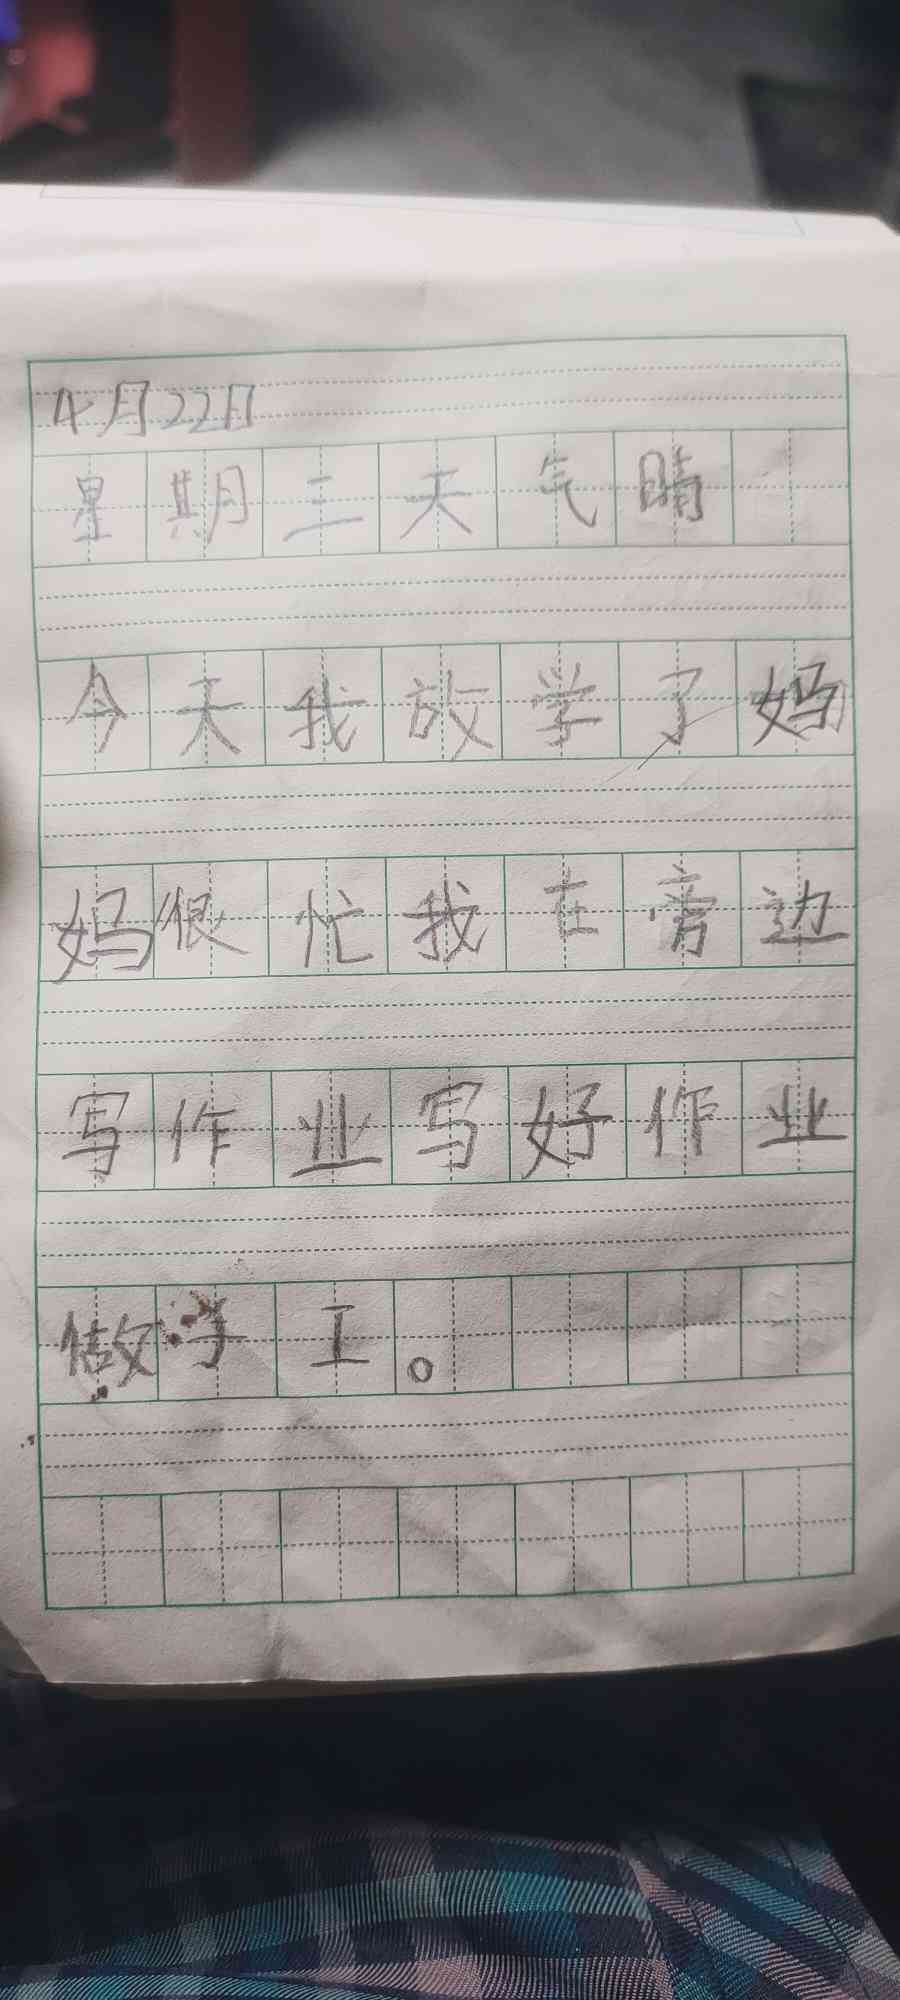 4月22日
星期三天气晴
今天我放学了妈
妈很忙我在旁边
写作业写好作业
做手工。